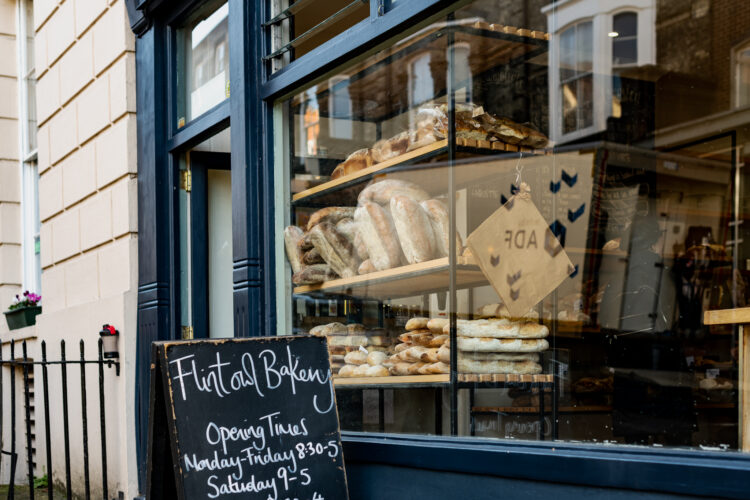 Flintowl Bakery
Opening Times
Monday-Friday 8:30-5
Saturday 9-5
ADF